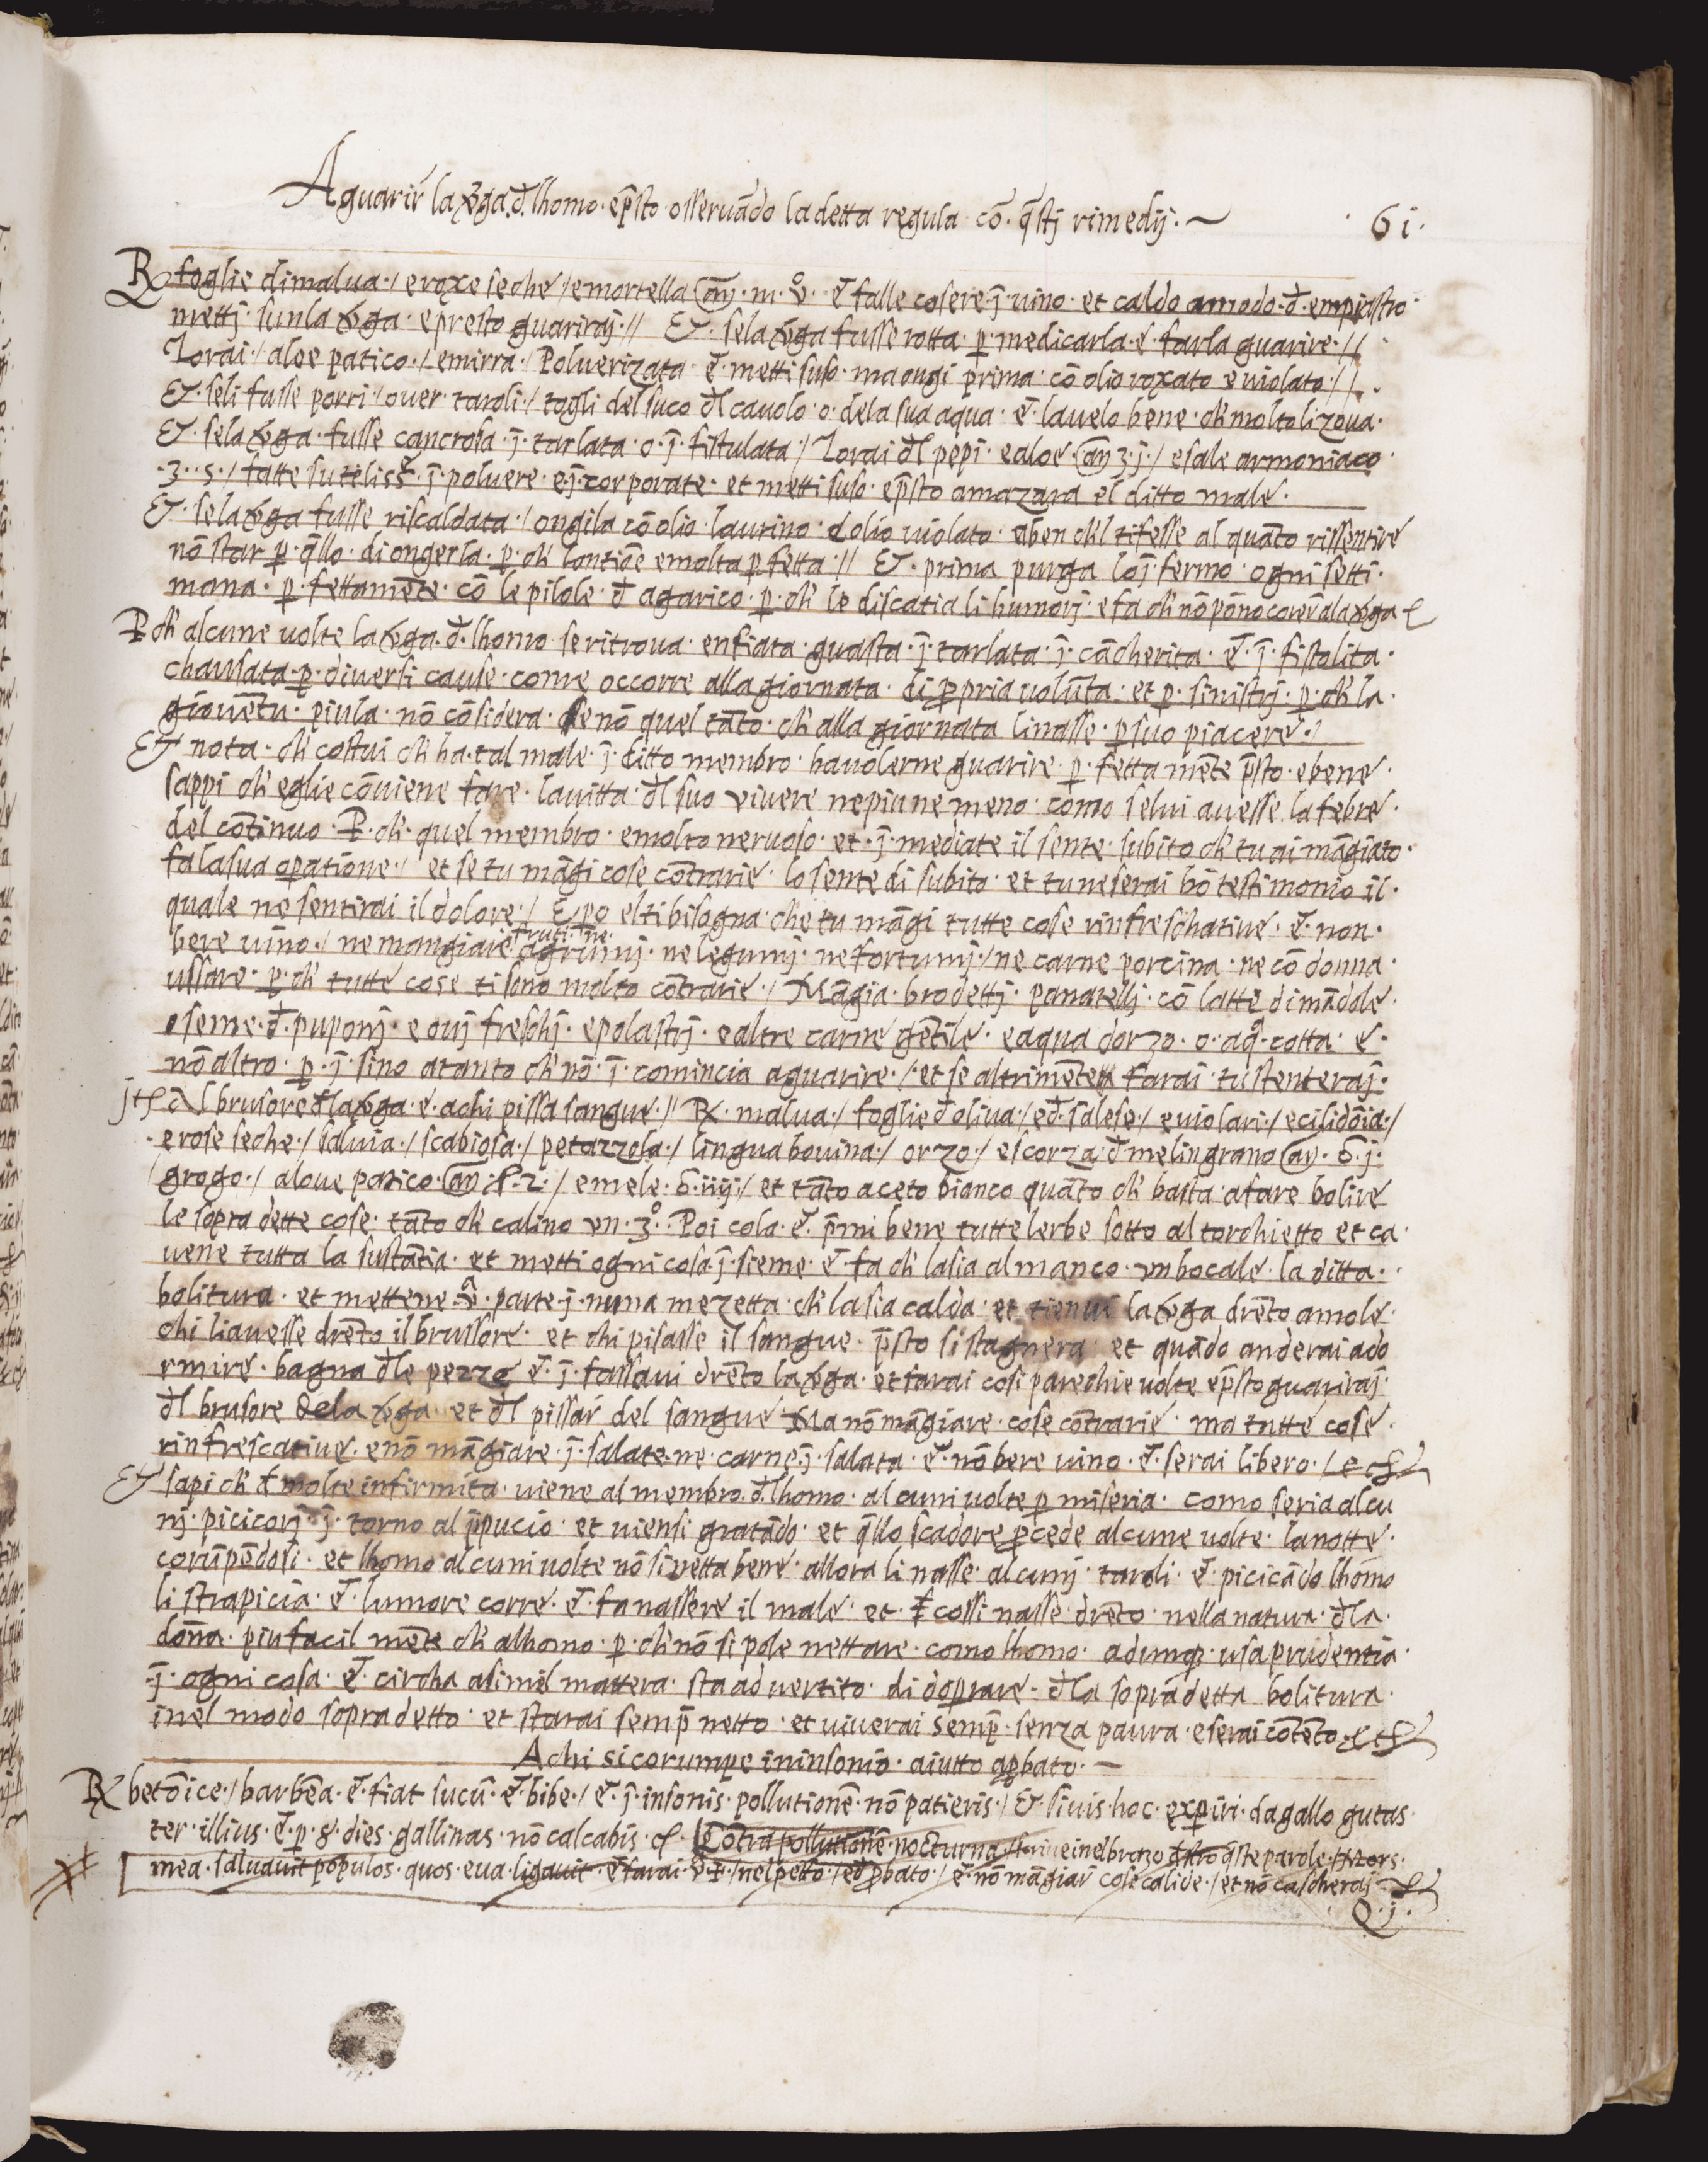 A guarir la v̄ga. đ. lhomo. ep̄sto osseruādo la detta regula. cō. q̄stj rimedij.
. 61.
R foglie di malua./ e roxe seche/ e mortella añ. m. v̊. & falle cosere. j̄. uino. et caldo amodo. đ. empiastro.
mettj. sunla v̄ga. e presto guariraj.// Et. se la v̄ga fusse rotta. p. medicarla. e. farla guarire.//.
Torai./ aloe patico./ e mirra./ Poluerizata. & metti suso. ma ongi prima. cō olio roxato e uiolato.//.
Et. seli fusse porri/ ouer. taroli./ togli del suco đl cauolo. o. dela sua aqua. & lauelo bene. ch' molto li zoua.
Et. se la v̄ga. fusse cancrosa. j̄. tarlata. o. j̄. fistulata./ Torai đl pepi. e aloe. añ ʒ. j./ e sale armoniaco.
.ʒ. s./ fatte sutiliss̄. j̄. poluere. e. j̄. corporate. et metti suso. ep̄sto amazara el ditto male.
Et. se la v̄ga fusse riscaldata./ ongila cō olio. laurino. e olio uiolato. aben ch'l ti fesse al quāto rissentire
nō star p. q̄llo. di ongerla. p. ch' lontiōe e molta p fetta.// Et. prima purga lo j̄ fermo. ogni setti.
mana. p. fettamēte. cō le pilole. đ agarico. p. ch' le discatia li humorj. e fa ch' nō pōno corer ala v̄ga &
P ch' alcune uolte la v̄ga. đ. lhomo se ritroua. enfiata. guasta. j̄. tarlata. j̄. cācherita. & j̄. fistolita.
chausata. p. diuersi cause. come occorre alla giornata. di ppria volūta. et p. sinistrj. p. ch' la.
giouētu. piu la. nō cōsidera. se nō quel tāto. ch' alla giornata li nasse. p suo piacere./
Et nota. ch' costui ch' ha. tal male. j̄. ditto membro. ha uolerne guarire. p. fetta mēte p̄sto. e bene.
sappi ch' eglie cōuiene fare. la uitta. đl suo viuere ne piu ne meno. como se lui auesse. la febre.
del cōtinuo. P. ch'. quel membro. e molto neruoso. et. j̄. mediate il sente. subito ch' tu ai māgiato.
fa la sua opatione./ et se tu māgi cose cōtrarie. lo sente di subito. et tu ne serai bō testimonio il.
quale ne sentirai il dolore./ E po el ti bisogna. che tu māgi tutte cose rinfreschatiue. & non.
fruti. ne.
bere uino./ ne mangiare agrumj. ne legumj. ne fortumj./ ne carne porcina. ne cō donna.
ussare. p. ch' tutte cose ti sono molto cōtrarie./ Māgia. brodettj. panatellj. cō latte di mādole.
e seme. đ. puponj. e ouj freschj. e polastrj. e altre carne gētile. e aqua dorzo. o. aq̄. cotta. e.
nō altro. p. j̄. sino atanto ch' nō. j̄. comincia aguarire./ et se altrimēte farai. tu stenteraj.
jt Al brusore đ la v̄ga. e. achi pissa sangue.// R. malua./ foglie đ oliua./ eđ. salese./ e uiolari./ e cilidōia./
. e rose seche./ saluia./ scabiosa./ petazzola./ lingua bouina./ orzo./ e scorza đ melingrano añ. ō. j.
grogo./ aloue patico. añ. . 2./ e mele. ō. iiij./ et tāto aceto bianco quāto ch' basta. afare bolire
le sopra dette cose. tāto ch' calino vn. 3°. Poi cola. & p̄mi bene tutte lerbe sotto al torchietto et ca.
uene tutta la sustātia. et metti ogni cosa. j̄. sieme. & fa ch' la sia al manco. vn bocale. la ditta..
bolitura. et mettene. parte. j. nuna mezetta. ch' la sia calda. et tienui la v̄ga drēto amole.
chi li auesse drēto il brussore. et chi pisasse il sangue. p̄sto si stagnera. et quādo anderai ado
rmire. bagna đle pezze & j̄. fassaui drēto la v̄ga. et farai cosi parechie uolte ep̄sto guariraj.
đl brusore dela v̄ga. et đl pissar del sangue Ma nō māgiare. cose cōtrarie. ma tutte cose.
rinfrescatiue. e nō māgiare. j̄. salate. ne. carne. j̄. salata. & nō bere uino. & serai libero./
Et sapi ch' đ molte infirmita. uiene al membro. đ. lhomo. alcuni uolte p miseria. como seria alcu
nj. picicorj. j̄. torno al p̄pucio. et uiensi gratādo. et q̄llo scadore pcede alcune uolte. la notte.
corūpēdosi. et lhomo alcuni uolte nō si netta bene. allora li nasse. alcunj. taroli. & picicādo lhomo
li strapicia. & lumore corre. & fa nassere il male. et. cossi nasse. drēto. nella natura. đ la.
dōna. piu facil mēte ch' alhomo. p. ch' nō si pole nettare. como lhomo. adunq. usa prudentia.
j̄. ogni cosa. & circha asimil mattera. sta aduertito. di doprare. đ la sopra detta bolitura.
inel modo sopradetto. et starai semp̄ netto. et uiuerai semp̄. senza paura. e serai cōtēto.
Achi si corumpe in insonio. aiutto apbato.
R betōice./ barbēa. & fiat sucū. & bibe./ & j̄. insonis. pollutionē. nō patieris./ Et. si uis hoc. expiri. da gallo gutas.
ter. illius. & p. 8. dies. gallinas. nō calcabis. Cōtra pollutionē. nocturna./ inel brazo q̄ste parole./ Mors.
mea. saluauit populos. quos. eua. ligauit. & farai. / nel petto./ ed pbato./ & nō māgiar cose calide./ et nō cascheraj
Q. j.